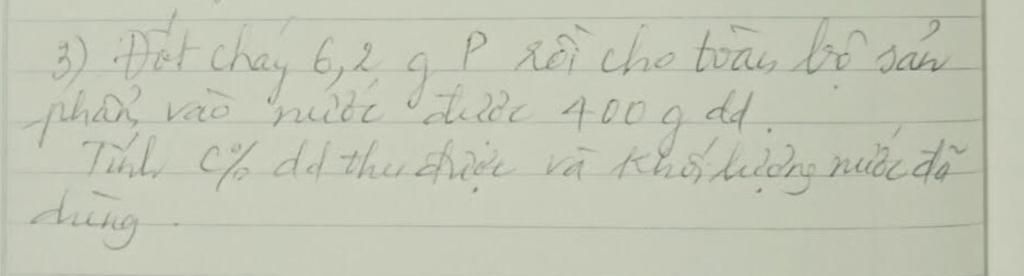 3) Đốt cháy 6,2 g P rồi cho toàn bộ sản
phẩm vào nước được 400 g dd.
Tính C% dd thu được và khối lượng nước đã
dùng.